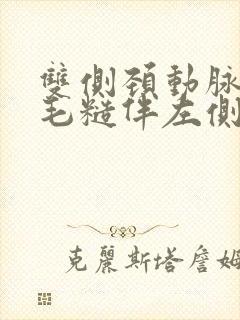 雙側頸動脈
毛糙伴左側
克麗斯塔詹姆